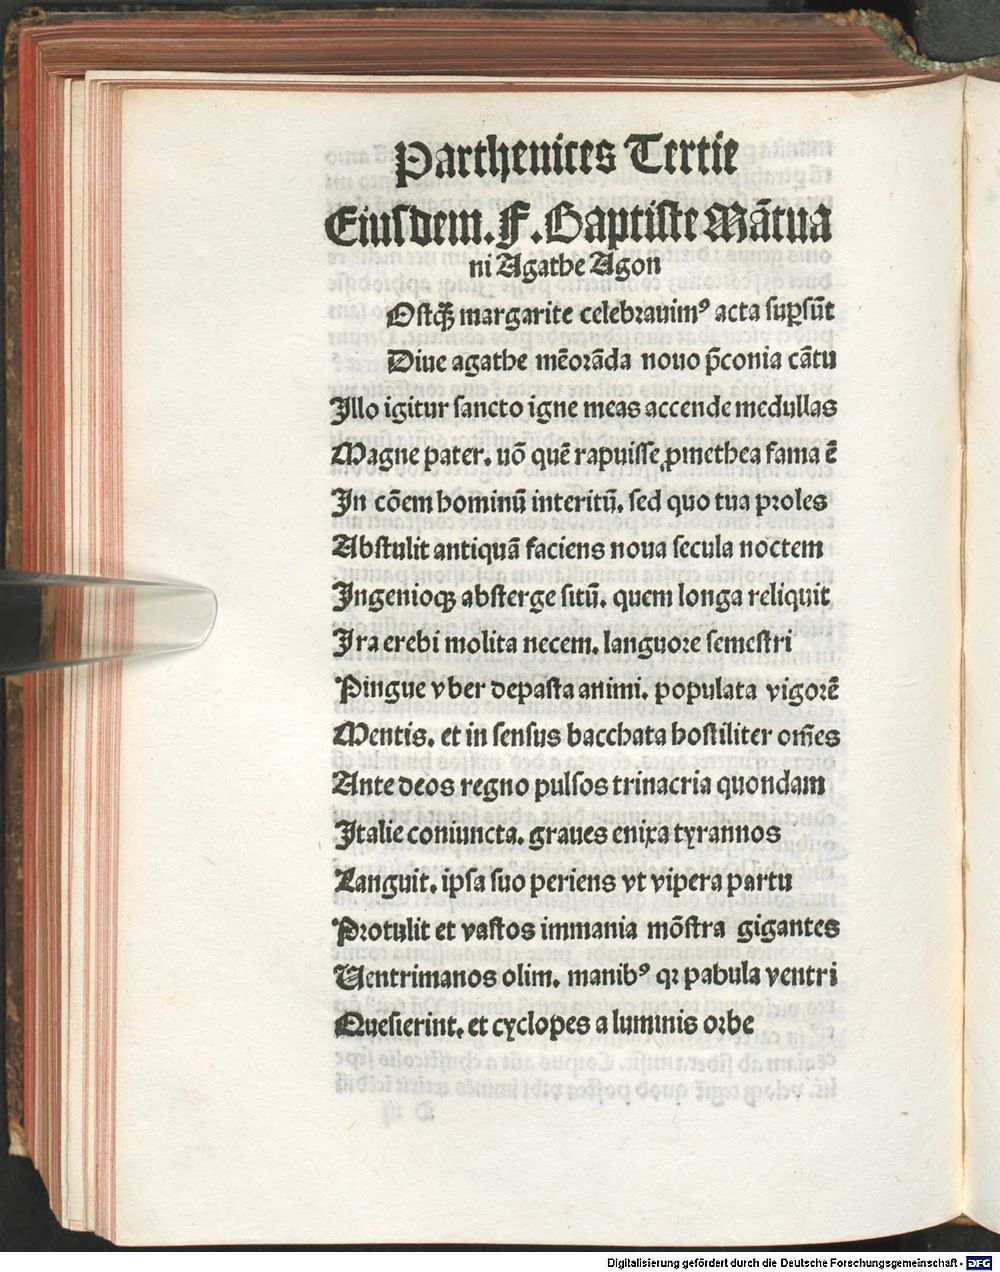 Parthenices Tertie
Eiusdem. F. Baptiste Mãtua
ni Agathe Agon
Ostꝗ̃ margarite celebrauimꝰ acta suꝑsũt
Diue agathe mẽorãda nouo p̃conia cãtu
Illo igitur sancto igne meas accende medullas
Magne pater. uõ quẽ rapuisse ꝓmethea fama ẽ
In cõem hominũ interitũ. sed quo tua proles
Abstulit antiquã faciens noua secula noctem
Ingenioqꝫ absterge sitũ. quem longa reliquit
Ira erebi molita necem. languore semestri
Pingue vber depasta animi. populata vigorẽ
Mentis. et in sensus bacchata hostiliter om̃es
Ante deos regno pulsos trinacria quondam
Italie coniuncta. graues enixa tyrannos
Languit. ipsa suo periens vt vipera partu
Protulit et vastos immania mõstra gigantes
Uentrimanos olim. manibꝰ qꝛ pabula ventri
Quesierint. et cyclopes a luminis orbe
Digitalisierung gefördert durch die Deutsche Forschungsgemeinschaft - DFG